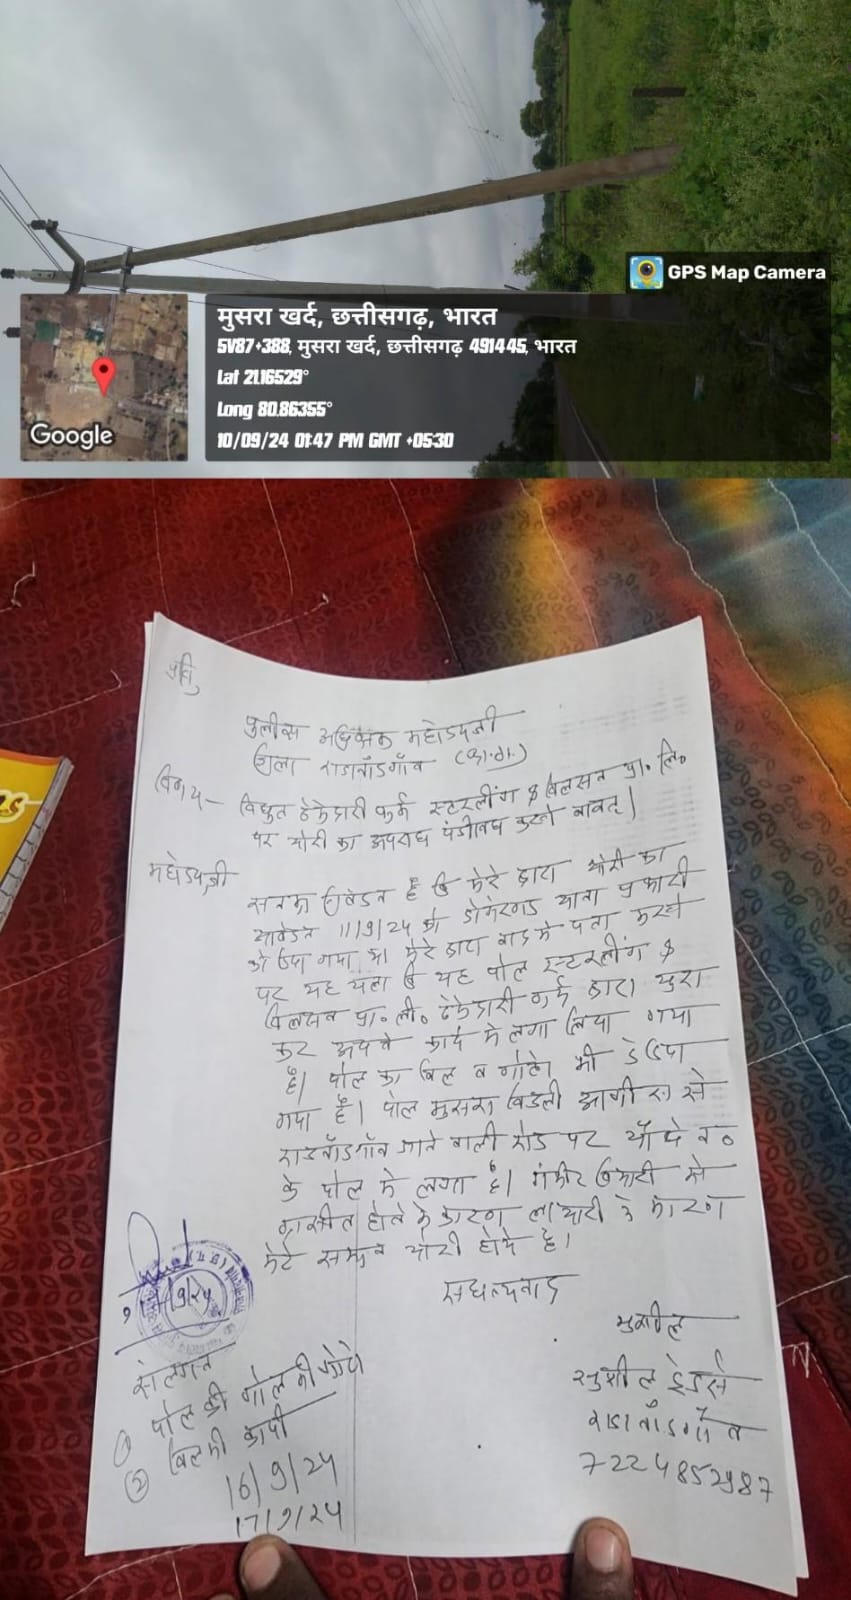 GPS Map Camera
मुसरा खर्द, छत्तीसगढ़, भारत
5V87+388, मुसरा खर्द, छत्तीसगढ़ 491445, भारत
Lat 21.16529°
Long 80.86355°
10/09/24 01:47 PM GMT +05:30
Google
प्रति,
पुलीस अधिक्षक महोदयजी
जिला राजनाँदगाँव (छ.ग.)
विषय - विधुत ठेकेदारी फर्म स्टरलींग & विलसन प्रा. लि.
पर चोरी का अपराध पंजीबध करने बाबत्।
महोदयजी
निवेदन है कि मेरे द्वारा चोरी का
आवेदन 11/9/24 को डोंगरगढ थाना प्रभारी
को दिया गया था मेरे द्वारा बाद मे पता करने
पर यह चला कि यह पोल स्टरलींग &
विलसन प्रा. ली. ठेकेदारी फर्म द्वारा चुरा
कर अपने कार्य मे लगा लिया गया
है। पोल का बिल व फोटो भी दे दिया
गया है। पोल मुसरा बिजली आफीस से
राजनाँदगाँव जाने वाली रोड पर चौंथे न०
के पोल मे लगा है। गंभीर बिमारी से
ग्रासीत होने के कारण लाचारी के कारण
मेरे समान चोरी होते है।
सधन्यवाद
17/9/24
संलग्न
① पोल की फोटो
② बिल की कापी
16/9/24
17/9/24
सुशील
सुशील ट्रेडर्स
राजनाँदगाँव
7224852987